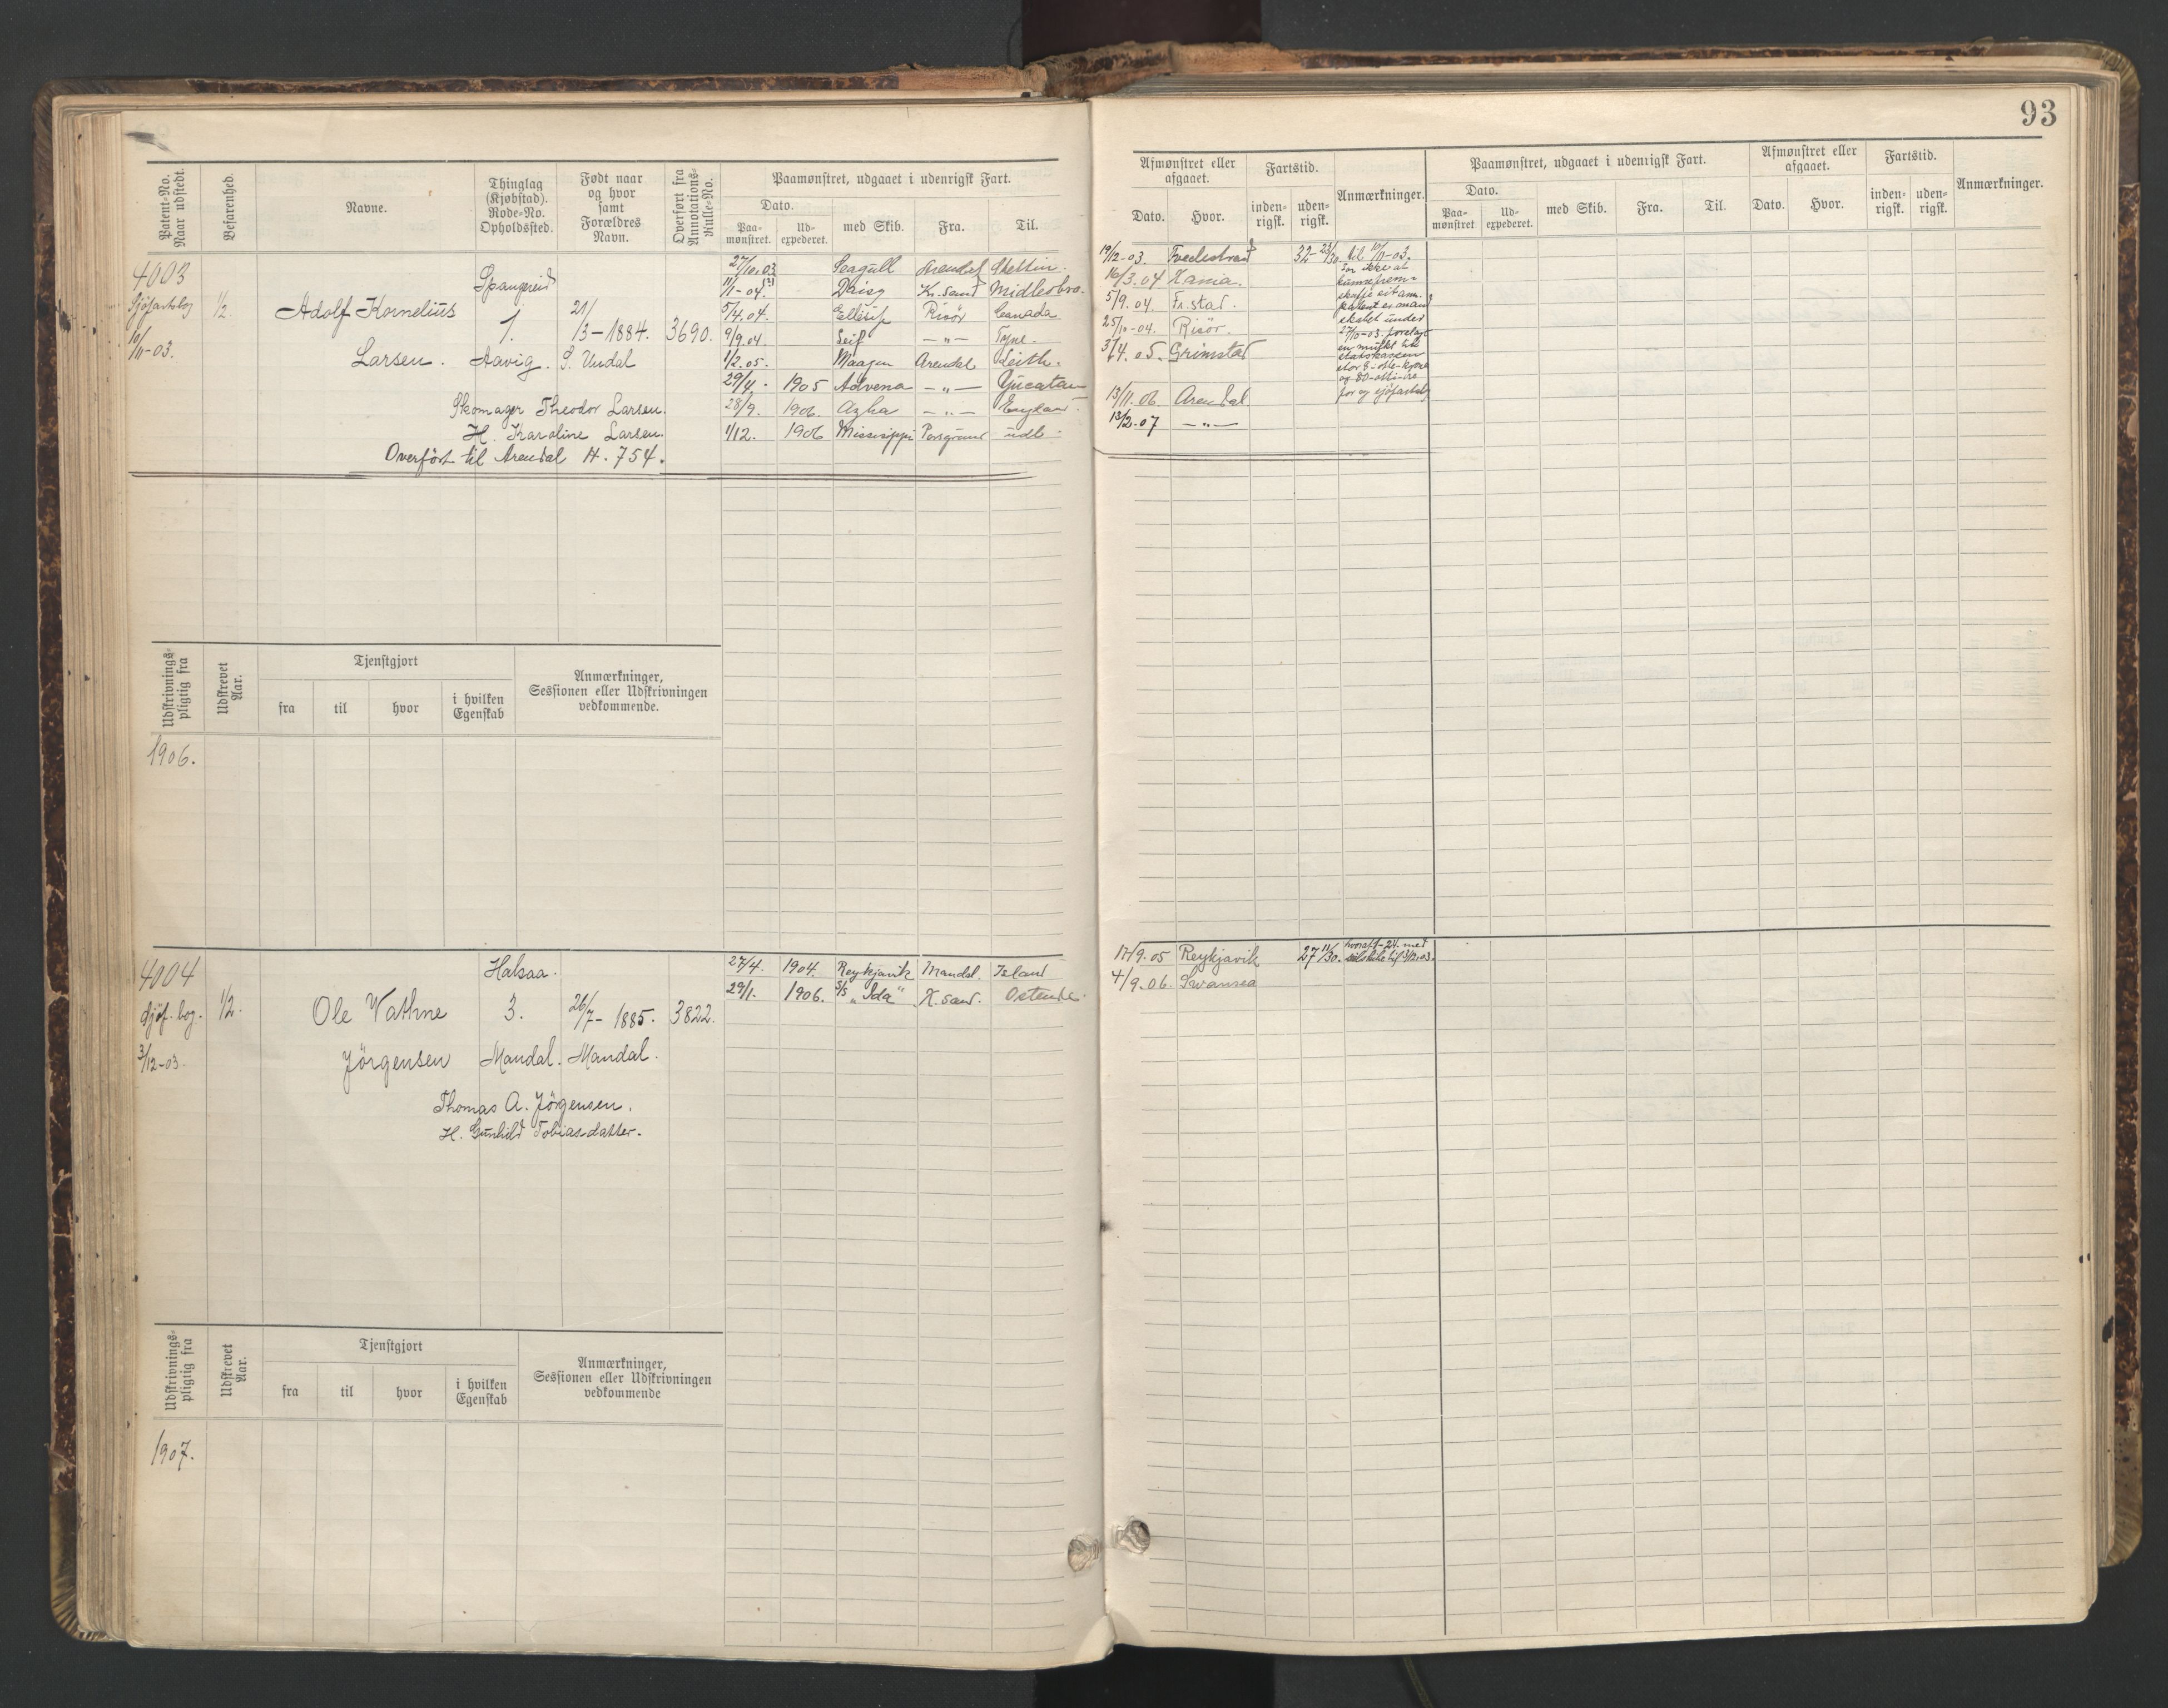 93
Patent-No. Naar udstedt.
Befarenhed.
Navne.
Thinglag (Kjøbstad). Rode-No. Opholdssted.
Født naar og hvor samt Forældres Navn.
Overført fra Annotations-Rulle-No.
Paamønstret, udgaaet i udenrigsk Fart.
Dato.
Paa-mønstret.
Ud-expederet.
med Skib.
Fra.
Til.
4003
Sjöfartsbog
10/11-03.
1/2.
Adolf Kornelius
Larsen.
Spangereid
1.
Aavig.
21/3-1884.
S. Undal
3690.
Skomager Theodor Larsen.
H. Karoline Larsen.
Overfört til Arendal H. 754.
27/10.03 Seagull Arendal Stettin.
11/1-04. Daisy Kr.sand Midlesbro.
5/4.04. Ellisif Risör Canada
9/9.04 Leif —"— Tyne.
1/2.05. Maagen Arendal Leith.
29/4. 1905 Advena —"— Yucatan
28/9. 1906. Azha —"— England
1/12. 1906 Missisippi Porsgrund udl.
Udskrivnings-pligtig fra
Udskrevet Aar.
Tjenstgjort
fra
til
hvor
i hvilken Egenskab
Anmærkninger, Sessionen eller Udskrivningen vedkommende.
1906.
4004
Sjöf. bog.
3/12-03.
1/2.
Ole Wathne
Jörgensen
Halsaa.
3.
Mandal.
26/7-1885.
Mandal.
3822.
Thomas A. Jörgensen.
H. Gunhild Tobiasdatter.
27/4. 1904. Reykjavik Mandal. Island
29/1. 1906. S/S "Ida" K.sand. Ostende.
Udskrivnings-pligtig fra
Udskrevet Aar.
Tjenstgjort
fra
til
hvor
i hvilken Egenskab
Anmærkninger, Sessionen eller Udskrivningen vedkommende
1907.
Afmønstret eller afgaaet.
Dato.
Hvor.
Fartstid.
inden-rigsk.
uden-rigsk.
Anmærkninger.
Paamønstret, udgaaet i udenrigsk Fart.
Dato.
Paa-mønstret
Ud-expederet.
med Skib.
Fra.
Til.
Afmønstret eller afgaaet.
Dato.
Hvor.
Fartstid.
inden-rigsk.
uden-rigsk.
Anmærkninger.
19/12-03. Tvedestrand 32-23/30. til 10/11-03.
16/3.04 Xania.
5/9.04. Fr.stad.
25/10-04. Risör.
3/4.05. Grimstad
13/11.06 Arendal.
13/2.07 —"—
For ikke at
kunne frem-
skaffe sit ann.
patent er man
27/10-03. forelagt
en mulkt til
statskassen
stor 8-otte-kroner
og 80-otti-öre
for ny sjöfartsbog
17/9.05 Reykjavik 27 11/30.
4/9.06. Swansea